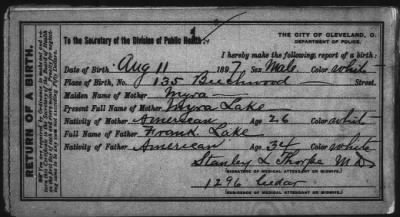 1
THE CITY OF CLEVELAND, O.
To the Secretary of the Division of Public Health:
DEPARTMENT OF POLICE.
I hereby make the following report of a birth:
Date of Birth, Aug 11 1897 Sex Male Color white
Place of Birth, No. 135 Beechwood Street.
Maiden Name of Mother Myra
Present Full Name of Mother Myra Lake
Nativity of Mother American Age 26 Color whit
Full Name of Father Frank Lake
Nativity of Father American Age 34 Color white
Stanley L Thorpe M D
(SIGNATURE OF MEDICAL ATTENDANT OR MIDWIFE.)
1296 Cedar
(RESIDENCE OF MEDICAL ATTENDANT OR MIDWIFE.)
RETURN OF A BIRTH.